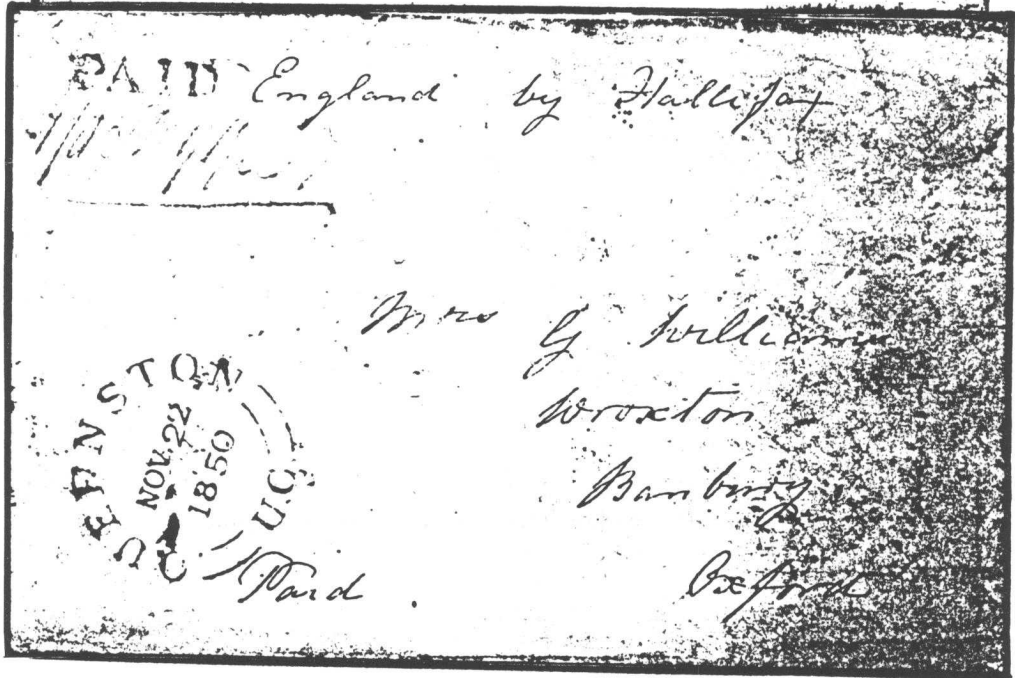 PAID England by Hallifax
Mrs G Williams
Wroxton
Banbury
Oxford
QUEENSTON U.C.
NOV. 22
1850
Paid